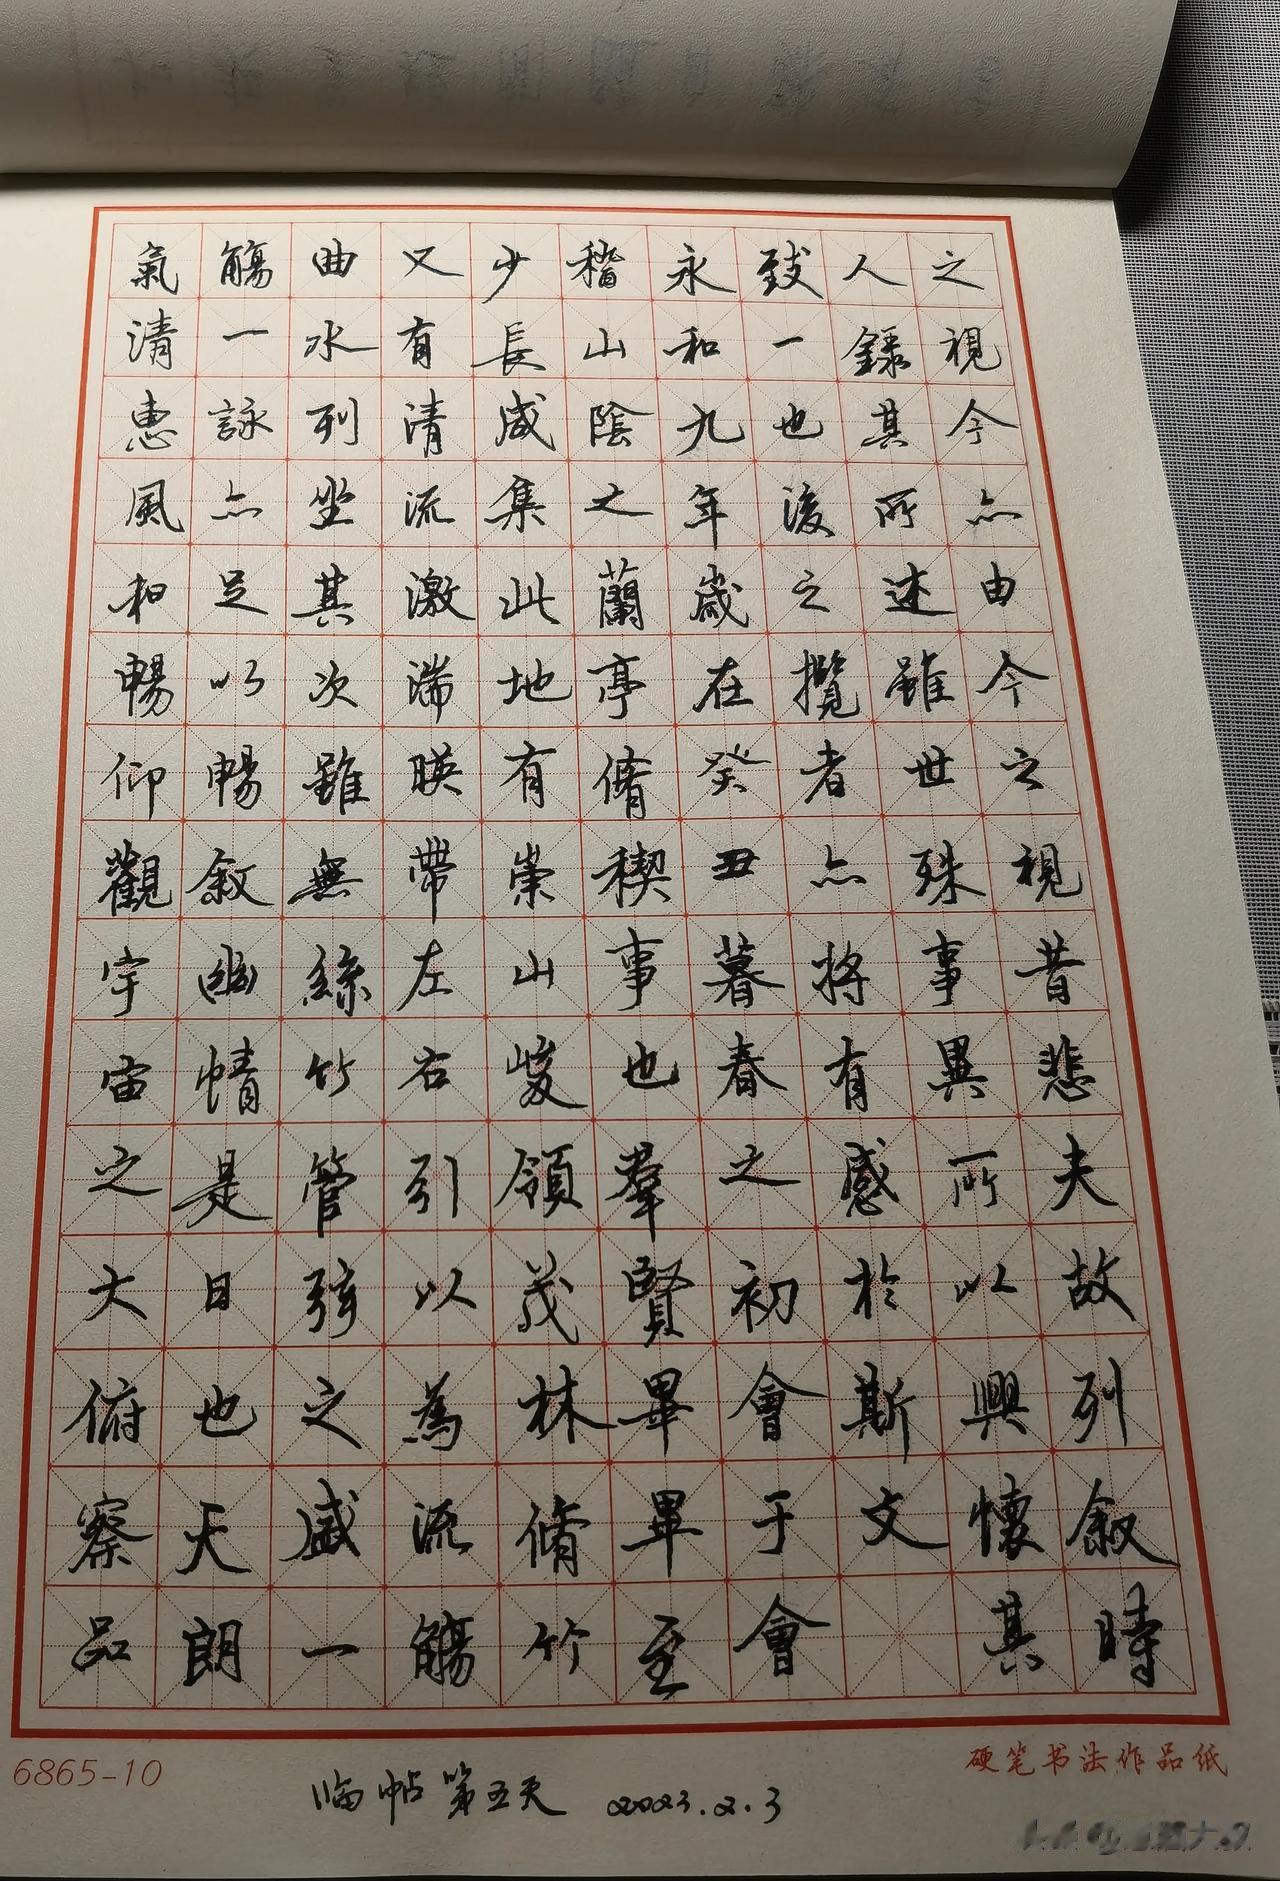 之視今亦由今之視昔悲夫故列叙時
人録其所述雖世殊事異所以興懷其
致一也後之攬者亦將有感於斯文
永和九年歲在癸丑暮春之初會于會
稽山陰之蘭亭脩稧事也羣賢畢畢至
少長咸集此地有崇山峻領茂林脩竹
又有清流激湍暎帶左右引以為流觴
曲水列坐其次雖無絲竹管弦之盛一
觴一詠亦足以暢叙幽情是日也天朗
氣清惠風和暢仰觀宇宙之大俯察品
6865-10
硬笔书法作品纸
临帖第五天 2023.2.3